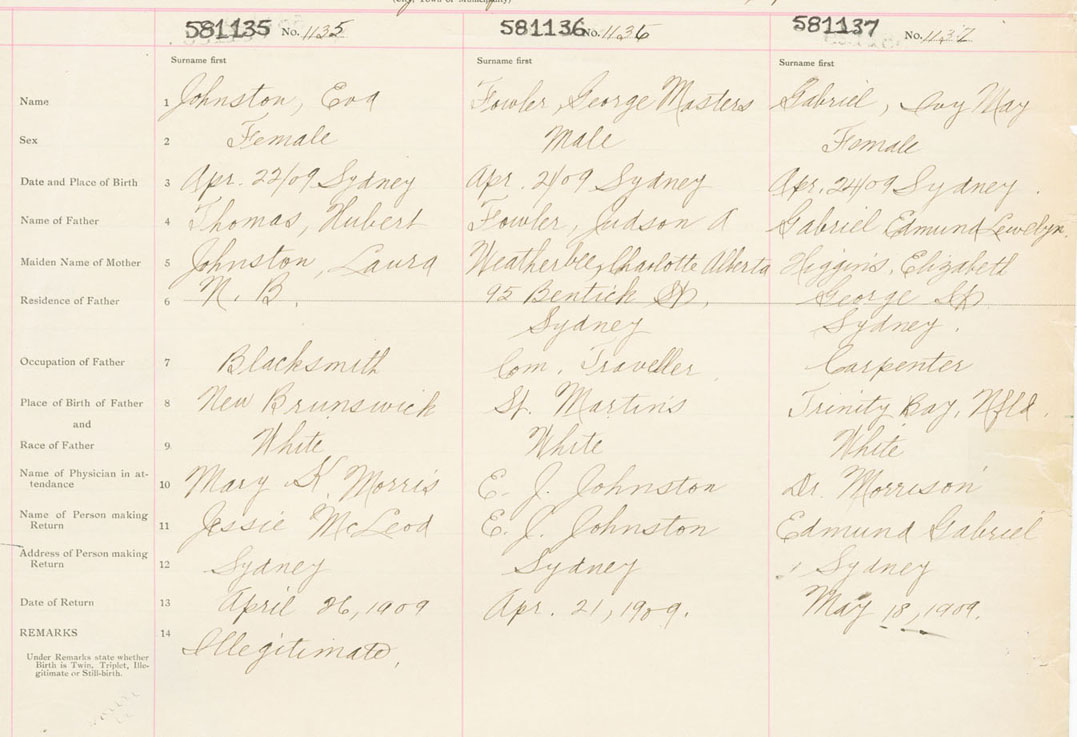 (City, Town or Municipality)
581135 No. 1135 581136 No. 1136 581137 No. 1137
Surname first Surname first Surname first
Name 1 Johnston, Eva Fowler, George Masters Gabriel, Ivy May
Sex 2 Female Male Female
Date and Place of Birth 3 Apr. 22/09 Sydney Apr. 2/09 Sydney Apr. 24/09 Sydney.
Name of Father 4 Thomas, Hubert Fowler, Judson A Gabriel Edmund Lewelyn.
Maiden Name of Mother 5 Johnston, Laura Weatherbee, Charlotte Alberta Higgins, Elizabeth
Residence of Father 6 N. B. 95 Bentick St, George St
Sydney Sydney.
Occupation of Father 7 Blacksmith Com. Traveller. Carpenter
Place of Birth of Father 8 New Brunswick St. Martins Trinity Bay, Nfld.
and
Race of Father 9 White White White
Name of Physician in at-
tendance 10 Mary K. Morris E. J. Johnston Dr. Morrison
Name of Person making
Return 11 Jessie McLeod E. J. Johnston Edmund Gabriel
Address of Person making
Return 12 Sydney Sydney Sydney
Date of Return 13 April 26, 1909 Apr. 21, 1909. May 18, 1909.
REMARKS 14 Illegitimate.
Under Remarks state whether
Birth is Twin, Triplet, Ille-
gitimate or Still-birth.